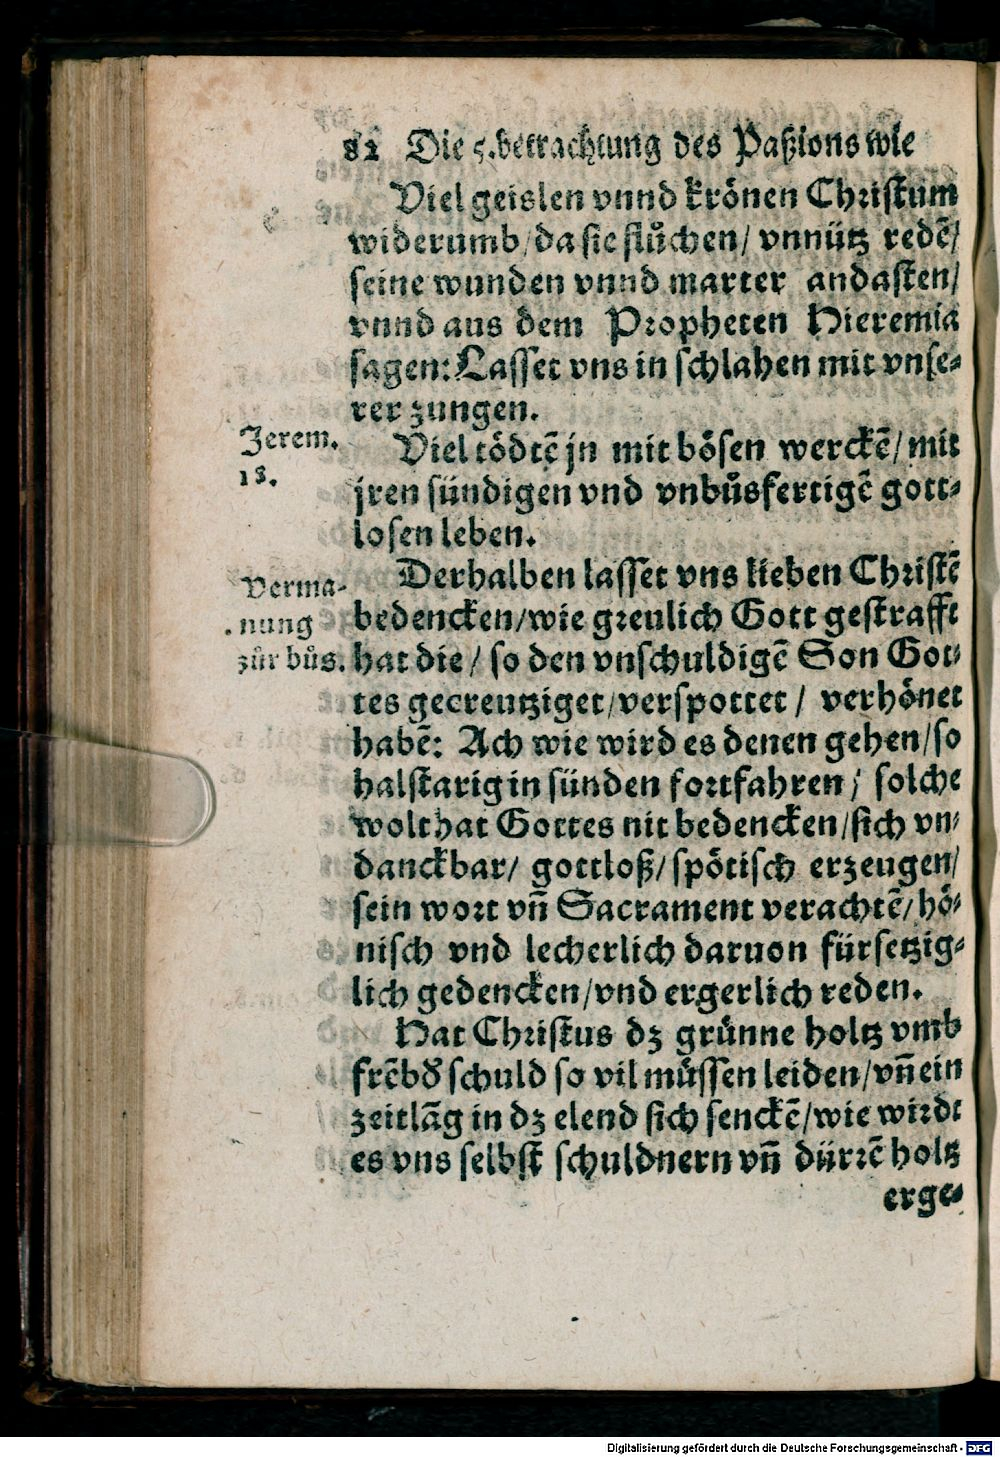 82 Die 5. betrachtung des Paßions wie
Viel geislen vnnd krönen Christum
widerumb/ da sie flůchen/ vnnütz redē/
seine wunden vnnd marter andasten/
vnnd aus dem Propheten Hieremia
sagen: Lasset vns in schlahen mit vnse-
rer zungen.
Jerem.
18.
Viel tödtē jn mit bösen werckē/ mit
jren sündigen vnd vnbůsfertigē gott-
losen leben.
Verma-
nung
zůr bůs.
Derhalben lasset vns lieben Christē
bedencken/ wie greulich Gott gestrafft
hat die/ so den vnschuldigē Son Got-
tes gecreutziget/ verspottet/ verhönet
habē: Ach wie wird es denen gehen/ so
halstarig in sünden fortfahren/ solche
wolthat Gottes nit bedencken/ sich vn-
danckbar/ gottloß/ spötisch erzeugen/
sein wort vñ Sacrament verachtē/ hö-
nisch vnd lecherlich daruon fürsetzig-
lich gedencken/ vnd ergerlich reden.
Hat Christus dz grünne holtz vmb
frēbd schuld so vil müssen leiden/ vñ ein
zeitlãg in dz elend sich senckē/ wie wirdt
es vns selbst schuldnern vñ dürrē holtz
erge-
Digitalisierung gefördert durch die Deutsche Forschungsgemeinschaft - DFG